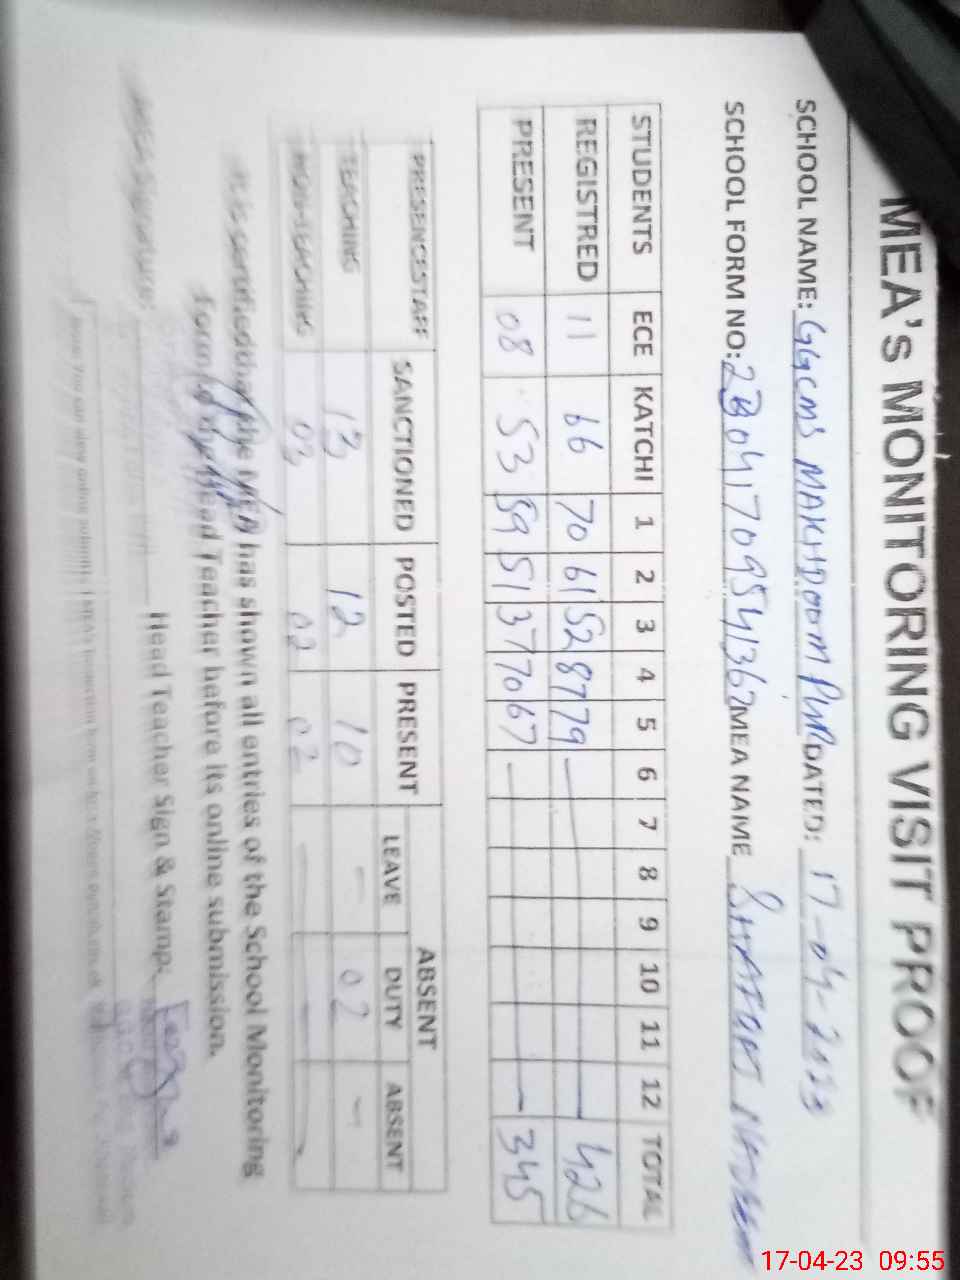 MEA's MONITORING VISIT PROOF
SCHOOL NAME: GGCMS MAKHDOOM PUR DATED: 17-04-2023
SCHOOL FORM NO: MEA NAME
STUDENTS ECE KATCHI 1 2 3 4 5 6 7 8 9 10 11 12 TOTAL
REGISTRED 11 66 70 61 52 87 79 — 426
PRESENT 08 53 59 51 37 70 67 — 345
PRESENCESTAFF SANCTIONED POSTED PRESENT ABSENT
LEAVE DUTY ABSENT
TEACHING 13 12 10 — 02 —
NON-TEACHING 03 02 02 — — —
It is certified that the MEA has shown all entries of the School Monitoring
form to the Head Teacher before its online submission.
MEA Signature: Head Teacher Sign & Stamp:
17-04-23 09:55